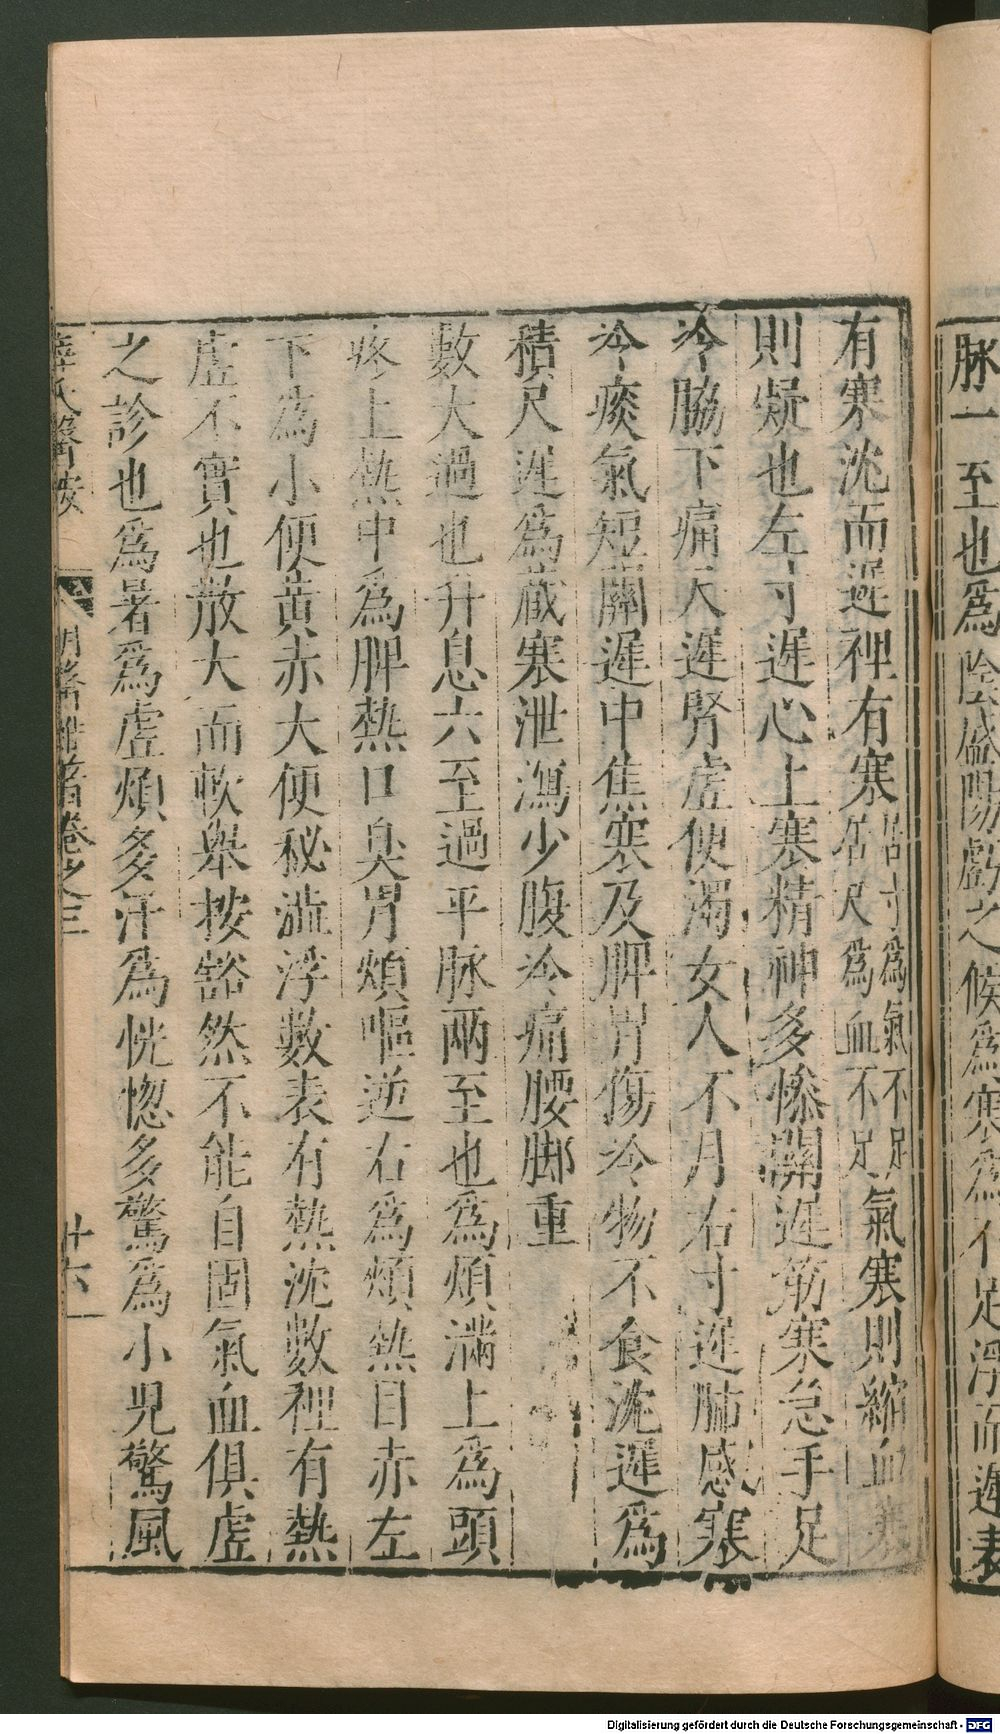 脉一至也為陰盛陽虧之候為寒為不足浮而遲表
有寒沈而遲裡有寒居寸為氣不足居尺為血不足氣寒則縮血寒
則凝也左寸遲心上寒精神多慘關遲筋寒急手足
冷脇下痛尺遲腎虛便濁女人不月右寸遲肺感寒
冷痰氣短關遲中焦寒及脾胃傷冷物不食沈遲為
積尺遲為藏寒泄瀉少腹冷痛腰脚重
數大過也一息六至過平脉兩至也為煩滿上為頭
疼上熱中為脾熱口臭胃煩嘔逆右為煩熱目赤左
下為小便黄赤大便秘澁浮數表有熱沈數裡有熱
虛不實也散大而軟舉按豁然不能自固氣血俱虛
之診也為暑為虛煩多汗為恍惚多驚為小兒驚風
薛氏醫按 明醫雜著卷之三 廿六
Digitalisierung gefördert durch die Deutsche Forschungsgemeinschaft - DFG